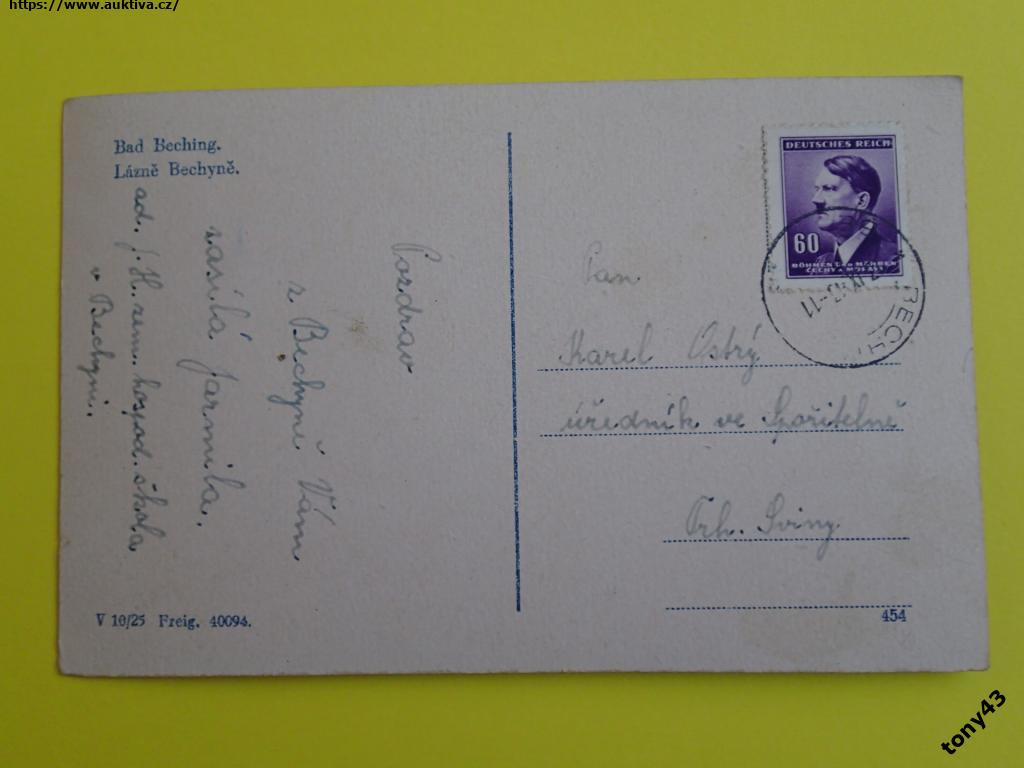 https://www.auktiva.cz/
Bad Beching.
Lázně Bechyně.
Pozdrav
z Bechyně Vám
zasílá Jarmila.
ad. J. H. zem. hospod. škola
v Bechyni.
V 10/25 Freig. 40094.
DEUTSCHES REICH
60
BÖHMEN u. MÄHREN
ČECHY a MORAVA
BECHY
-11
Pan
Karel Ostrý
úředník ve Spořitelně
Trh. Sviny
454
tony43